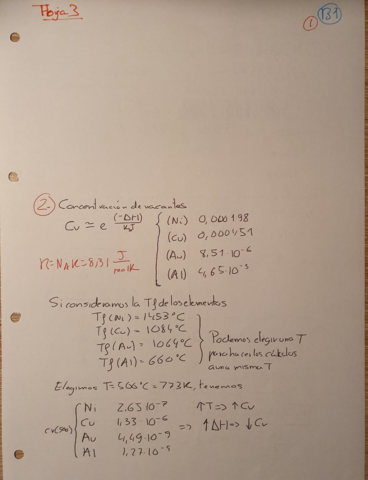 Hoja 3
1 B1
2. Concentración de vacantes
Cv ≃ e (-ΔH)/kT { (Ni) 0,000198
(Cu) 0,000451
(Au) 8,51·10⁻⁶
(Al) 4,65·10⁻⁵
R = NAK = 8,31 J/mol K
Si consideramos la Tf de los elementos
Tf (Ni) = 1453°C
Tf (Cu) = 1084°C
Tf (Au) = 1064°C
Tf (Al) = 660°C
} Podemos elegir una T
para hacer los cálculos
a una misma T
Elegimos T = 500°C = 773K, tenemos
Cv(500) { Ni 2,65·10⁻⁷ ↑T => ↑Cv
Cu 1,33·10⁻⁶
Au 4,49·10⁻⁹ => ↑ΔH => ↓Cv
Al 1,27·10⁻⁵